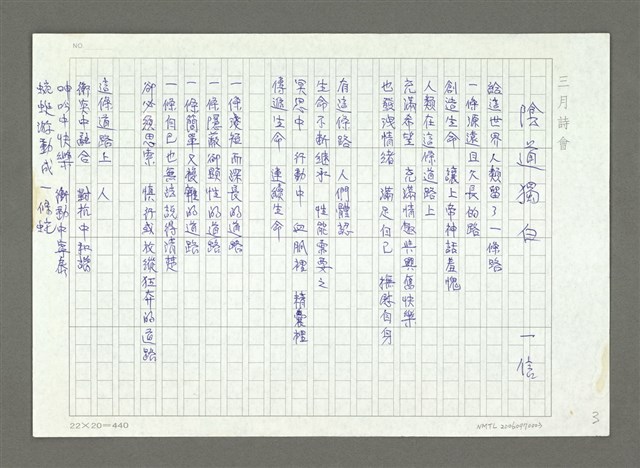 三月詩會
陰道獨白
一信
給造世界人類留了一條路
一條源遠且久長的路
創造生命 讓上帝神話羞愧
人類在這條道路上
充滿希望 充滿情慾與興奮快樂
也發洩情緒 滿足自己 撫慰自身
有這條路 人們體認
生命不斷繼承 性能需要之
冥思中 行動中 血脈裡 精囊裡
傳遞生命 連續生命
一條淺短而深長的道路
一條隱蔽卻顯性的道路
一條簡單又複雜的道路
一條自己也無法說得清楚
卻必須思索 慎行或放縱狂奔的道路
這條道路上 人
衝突中融合 對抗中和諧
呻吟中快樂 衝動中寧泰
蜿蜒游動成一條蛇
NO
22×20=440
NMTL 20060970003
3